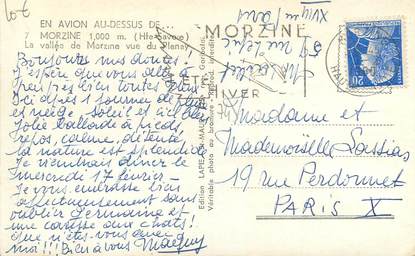 EN AVION AU-DESSUS DE...
7 MORZINE 1,000 m. (Hte-Savoie)
La vallée de Morzine vue du Plenay
Bonjours mes doutes!
J'espère que vous allez à
peu près bien toutes
Ici après 1 journée de
et neige soleil et ciel bleu
Jolie ballade à pieds,
repos, calme, détente,
la nature est splendide
Je rentrais dîner le
mercredi 17 février -
Je vous embrasse bien
affectueusement sans
oublier Germaine et
une caresse aux chats!
que n'êtes-vous avec
moi!!! Bien à vous Maguy
Edition LAPIE
Véritable photo au bromure
MORZINE
ÉTÉ
HIVER
20
Madame et
Mademoiselle Lassias
19 rue Perdonnet
PARIS X